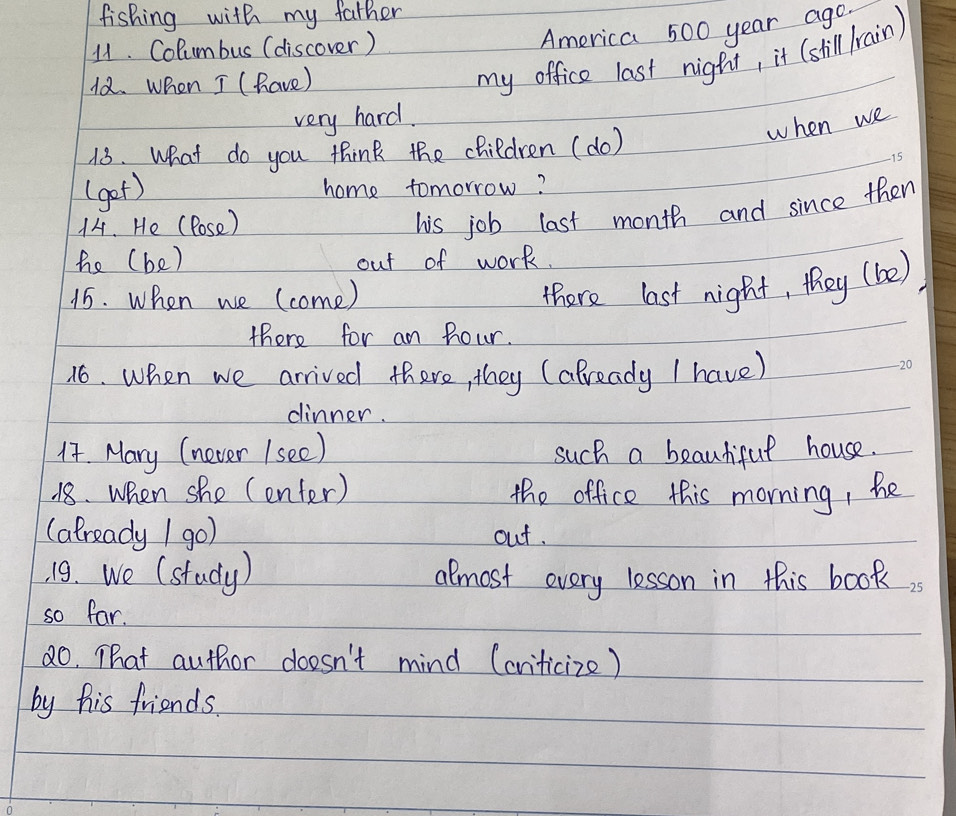 fishing with my father
11. Columbus (discover) America 500 year ago.
12. When I (have) my office last night, it (still/rain)
very hard.
13. What do you think the children (do) when we
(get) home tomorrow?
14. He (lose) his job last month and since then
he (be) out of work.
15. When we (come) there last night, they (be)
there for an hour.
16. When we arrived there, they (already / have)
dinner.
17. Mary (never / see) such a beautiful house.
18. When she (enter) the office this morning, he
(already / go) out.
19. We (study) almost every lesson in this book
so far.
20. That author doesn't mind (criticize)
by his friends.
15
20
25
0